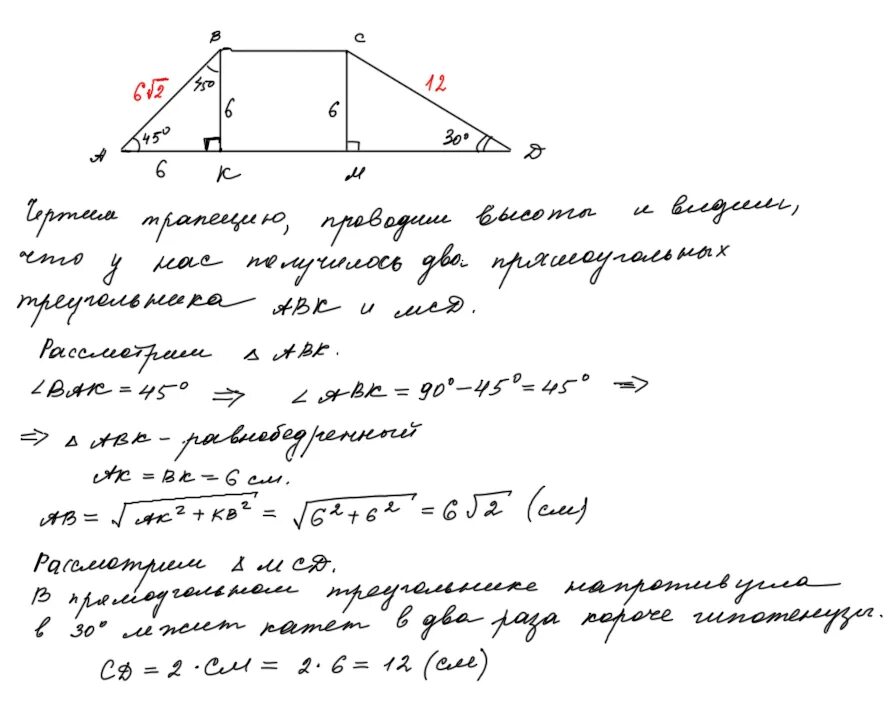 B C
6√2 45° 6 6 12
A 45° 30° D
6 K M
Чертим трапецию, проводим высоты и видим,
что у нас получилось два прямоугольных
треугольника ABK и MCD.
Рассмотрим △ ABK.
∠BAK = 45° ⇒ ∠ ABK = 90° − 45° = 45° ⇒
⇒ △ ABK − равнобедренный
AK = BK = 6 см.
AB = √AK² + KB² = √6² + 6² = 6√2 (см)
Рассмотрим △ MCD.
В прямоугольном треугольнике напротив угла
в 30° лежит катет в два раза короче гипотенузы.
CD = 2 · CM = 2 · 6 = 12 (см)